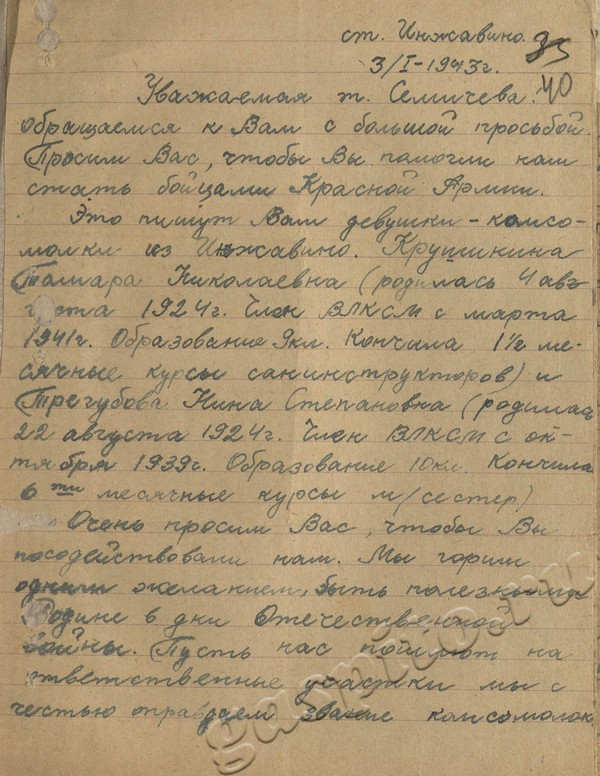 ст. Инжавино.
3/I-1943г.
40
Уважаемая т. Семичева!
обращаемся к Вам с большой просьбой.
Просим Вас, чтобы Вы помогли нам
стать бойцами Красной Армии.
Это пишут Вам девушки-комсо-
молки из Инжавино. Крупинина
Тамара Николаевна (родилась 4 авг-
уста 1924г. Член ВЛКСМ с марта
1941г. Образование 9кл. Кончила 1½ ме-
сячные курсы санинструкторов) и
Трегубова Нина Степановна (родилась
22 августа 1924г. Член ВЛКСМ с ок-
тября 1939г. Образование 10кл. Кончила
6ти месячные курсы м/сестер)
Очень просим Вас, чтобы Вы
посодействовали нам. Мы горим
одним желанием, быть полезными
Родине в дни Отечественной
войны. Пусть нас пошлют на
ответственные участки мы с
честью оправдаем звание комсомолок
gaspito.ru